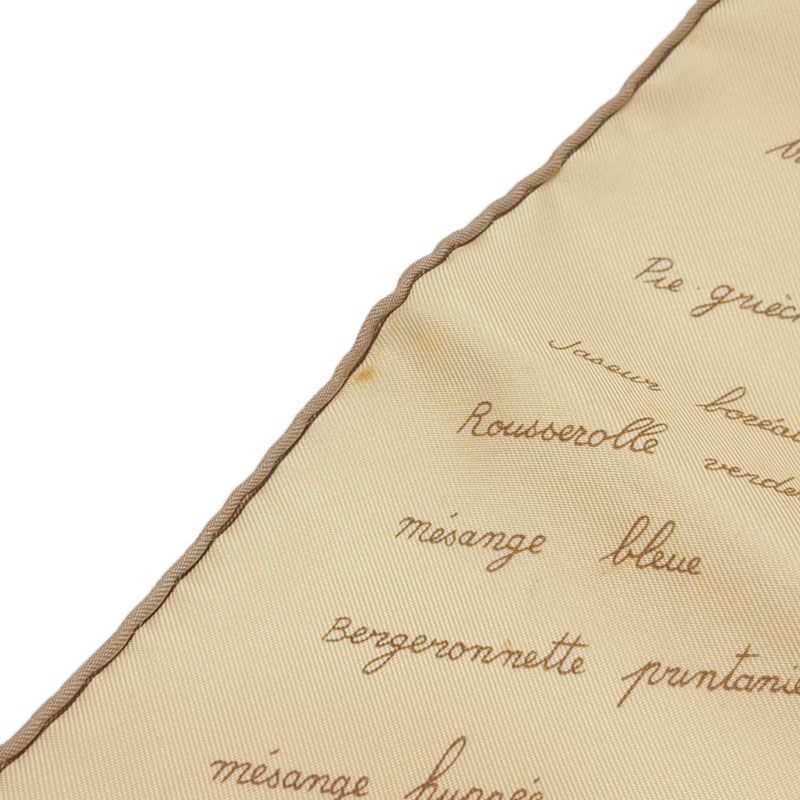 Pie. grièc
Jaseur boréa
Rousserolle verde
mésange bleue
Bergeronnette printaniè
mésange huppée